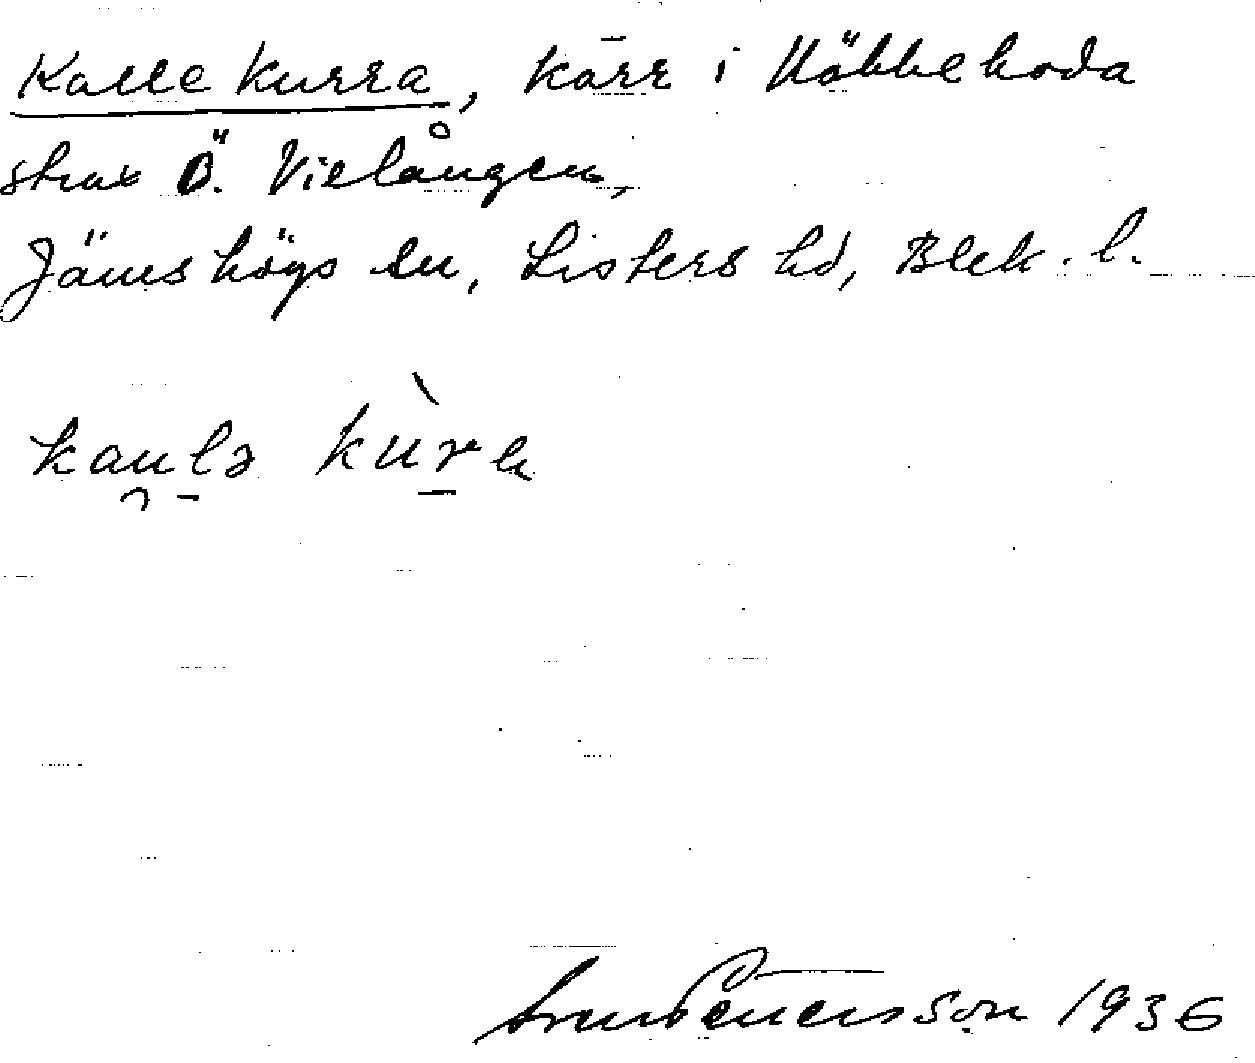 Kalle kurra, kärr i Käbbleboda
strax Ö. Vielången,
Jämshögs sn, Listers hd, Blek. l.
kaulə kùra
Petersson 1936